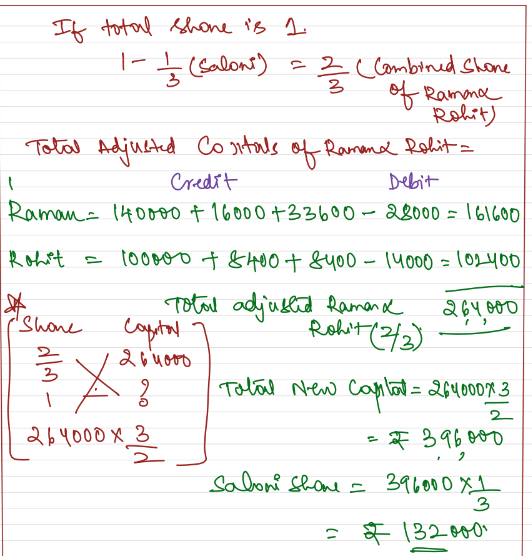 If total share is 1
1 - 1/3 (Saloni) = 2/3 (Combined Share of Raman & Rohit)
Total Adjusted Capitals of Raman & Rohit =
Credit Debit
Raman = 140000 + 16000 + 33600 - 28000 = 161600
Rohit = 100000 + 8400 + 8400 - 14000 = 102400
Total adjusted Raman & Rohit (2/3) 264,000
Share Capital
2/3 264000
1 ?
264000 × 3/2
Total New Capital = 264000 × 3/2
= ₹ 396,000
Saloni Share = 396000 × 1/3
= ₹ 132000